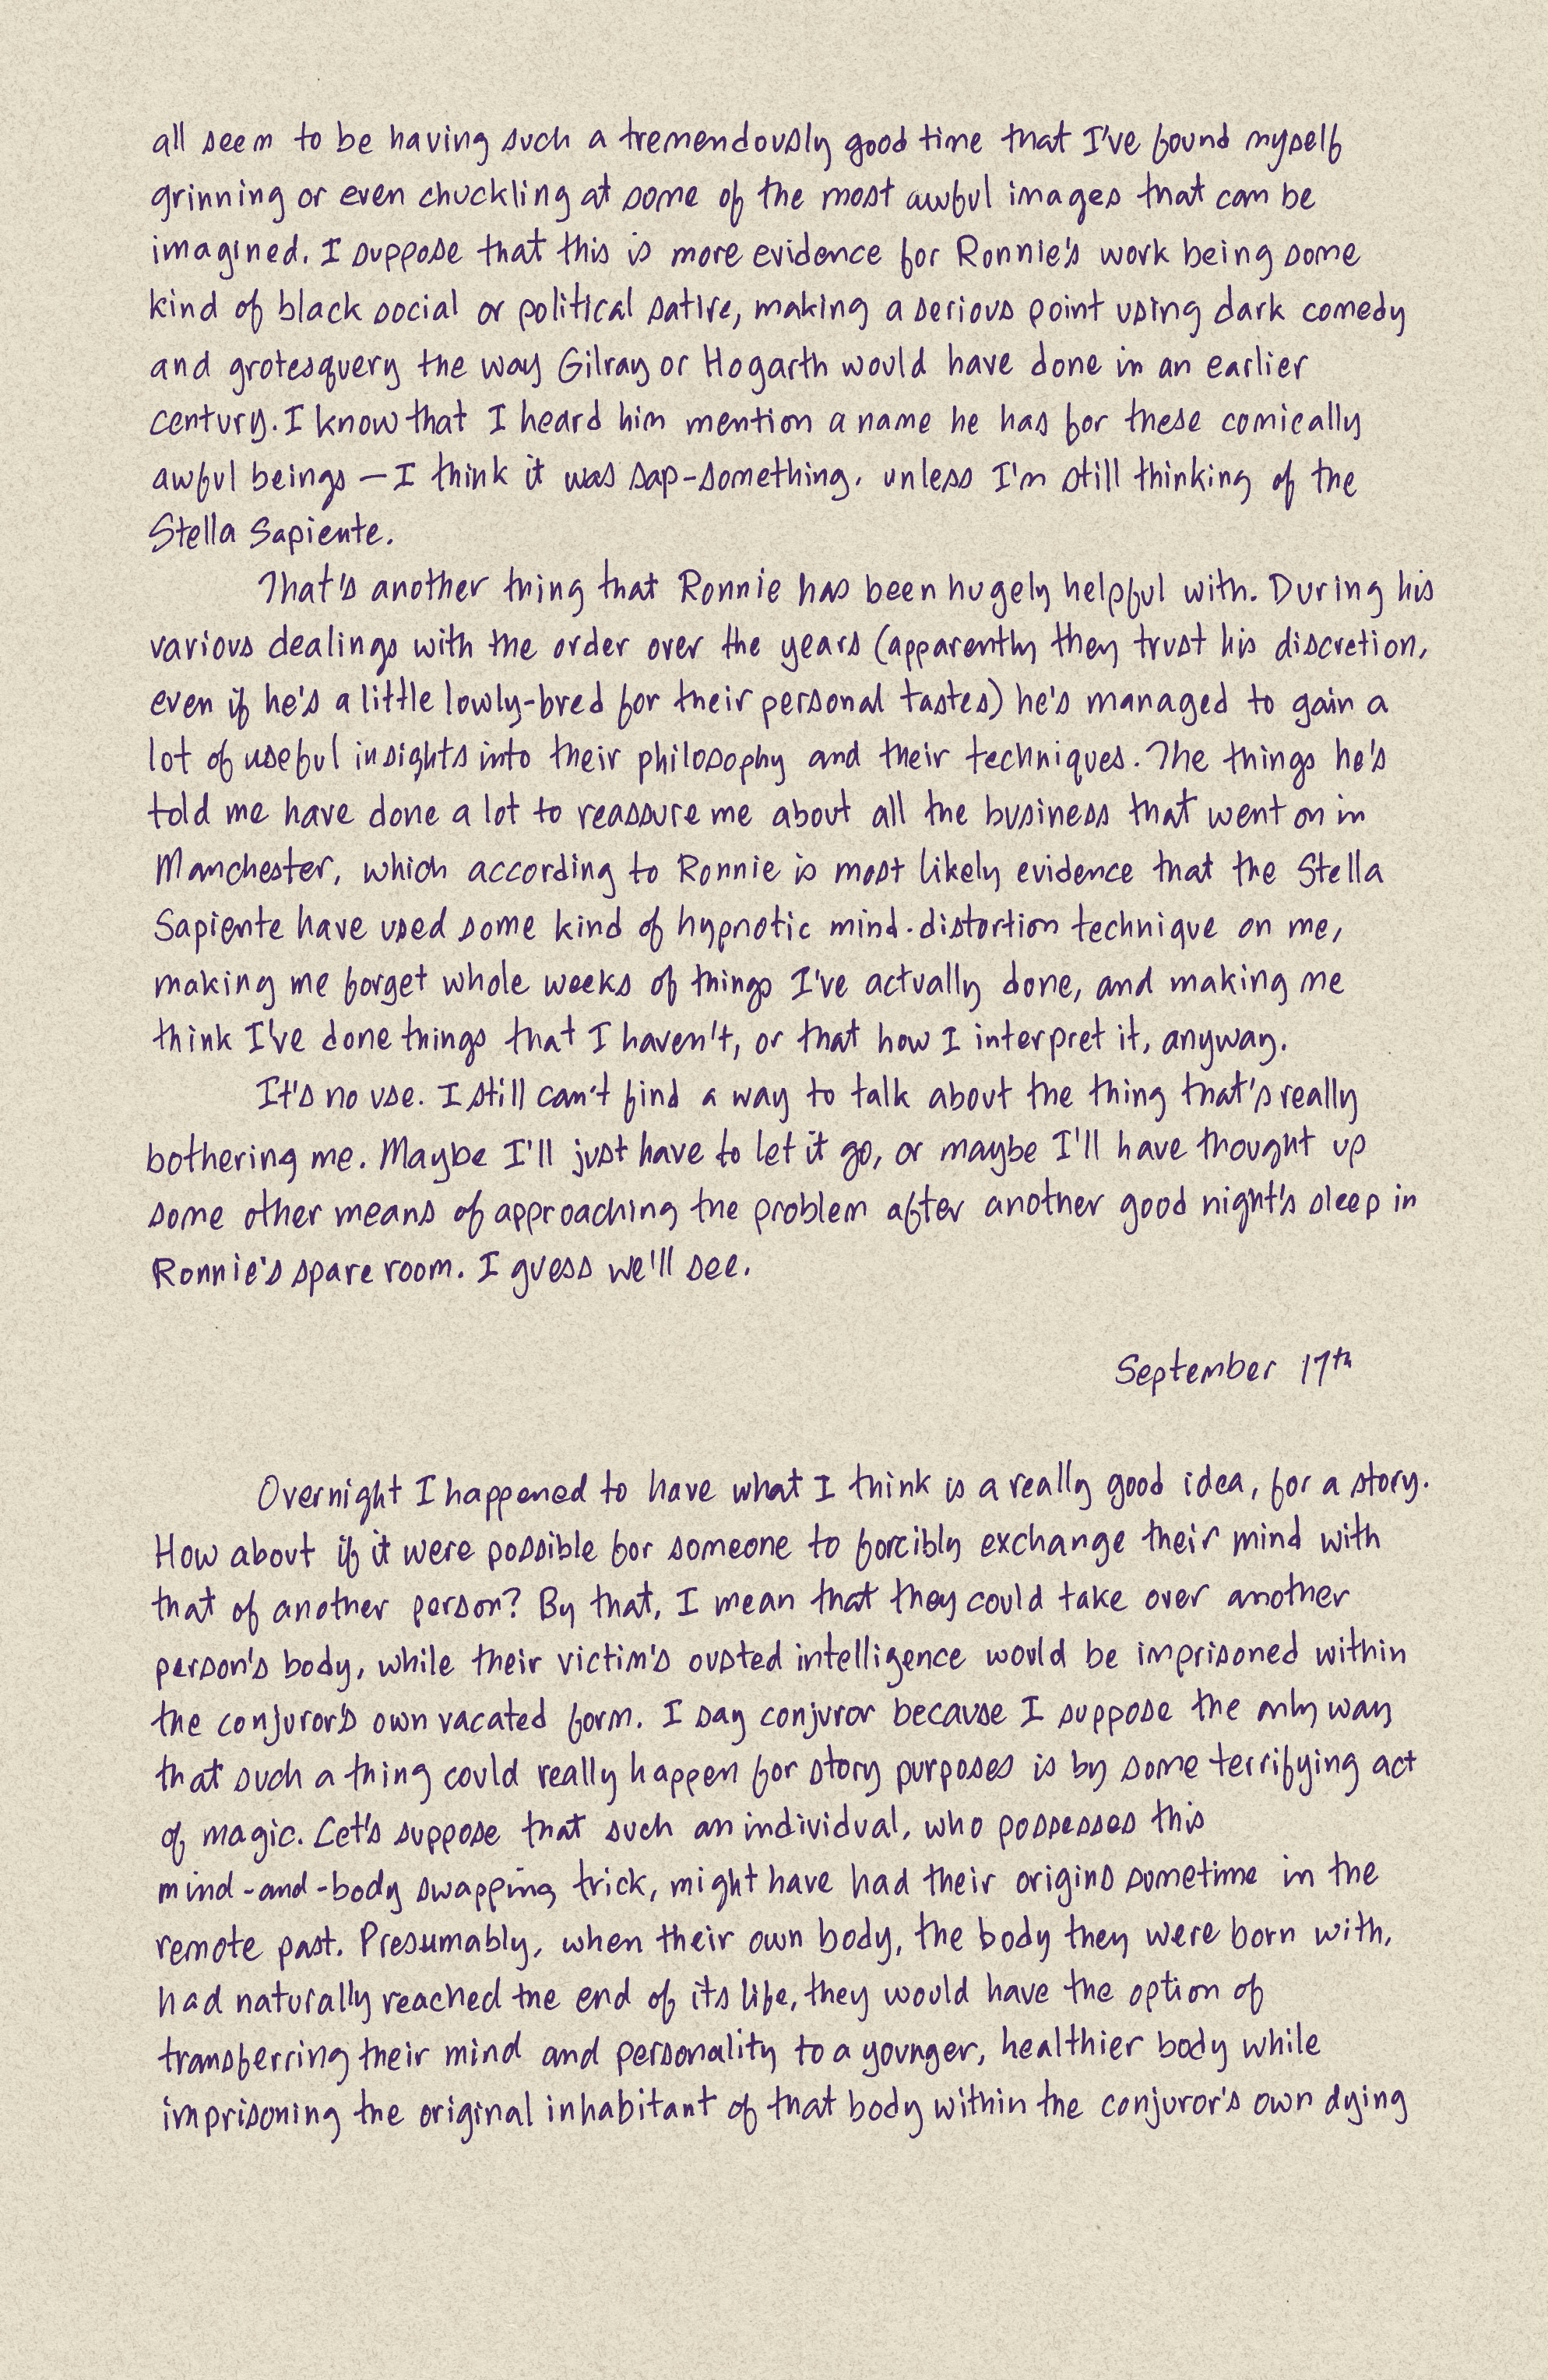 all seem to be having such a tremendously good time that I've found myself
grinning or even chuckling at some of the most awful images that can be
imagined. I suppose that this is more evidence for Ronnie's work being some
kind of black social or political satire, making a serious point using dark comedy
and grotesquery the way Gilray or Hogarth would have done in an earlier
century. I know that I heard him mention a name he has for these comically
awful beings — I think it was sap-something, unless I'm still thinking of the
Stella Sapiente.
That's another thing that Ronnie has been hugely helpful with. During his
various dealings with the order over the years (apparently they trust his discretion,
even if he's a little lowly-bred for their personal tastes) he's managed to gain a
lot of useful insights into their philosophy and their techniques. The things he's
told me have done a lot to reassure me about all the business that went on in
Manchester, which according to Ronnie is most likely evidence that the Stella
Sapiente have used some kind of hypnotic mind-distortion technique on me,
making me forget whole weeks of things I've actually done, and making me
think I've done things that I haven't, or that how I interpret it, anyway.
It's no use. I still can't find a way to talk about the thing that's really
bothering me. Maybe I'll just have to let it go, or maybe I'll have thought up
some other means of approaching the problem after another good night's sleep in
Ronnie's spare room. I guess we'll see.
September 17th
Overnight I happened to have what I think is a really good idea, for a story.
How about if it were possible for someone to forcibly exchange their mind with
that of another person? By that, I mean that they could take over another
person's body, while their victim's ousted intelligence would be imprisoned within
the conjuror's own vacated form. I say conjuror because I suppose the only way
that such a thing could really happen for story purposes is by some terrifying act
of magic. Let's suppose that such an individual, who possesses this
mind-and-body swapping trick, might have had their origins sometime in the
remote past. Presumably, when their own body, the body they were born with,
had naturally reached the end of its life, they would have the option of
transferring their mind and personality to a younger, healthier body while
imprisoning the original inhabitant of that body within the conjuror's own dying